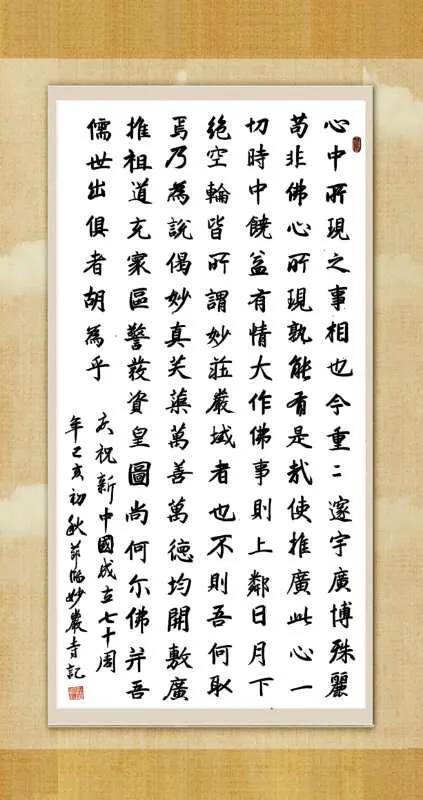 心中所現之事相也今重〻邃宇廣博殊麗
苟非佛心所現孰能有是哉使推廣此心一
切時中饒益有情大作佛事則上鄰日月下
絶空輪皆所謂妙莊嚴域者也不則吾何取
焉乃為說偈妙真芙蕖萬善萬德均開敷廣
推祖道充家區警發資皇圖尚何尔佛并吾
儒世出俱者胡為乎
庆祝新中國成立七十周
年己亥初秋節臨妙嚴寺記